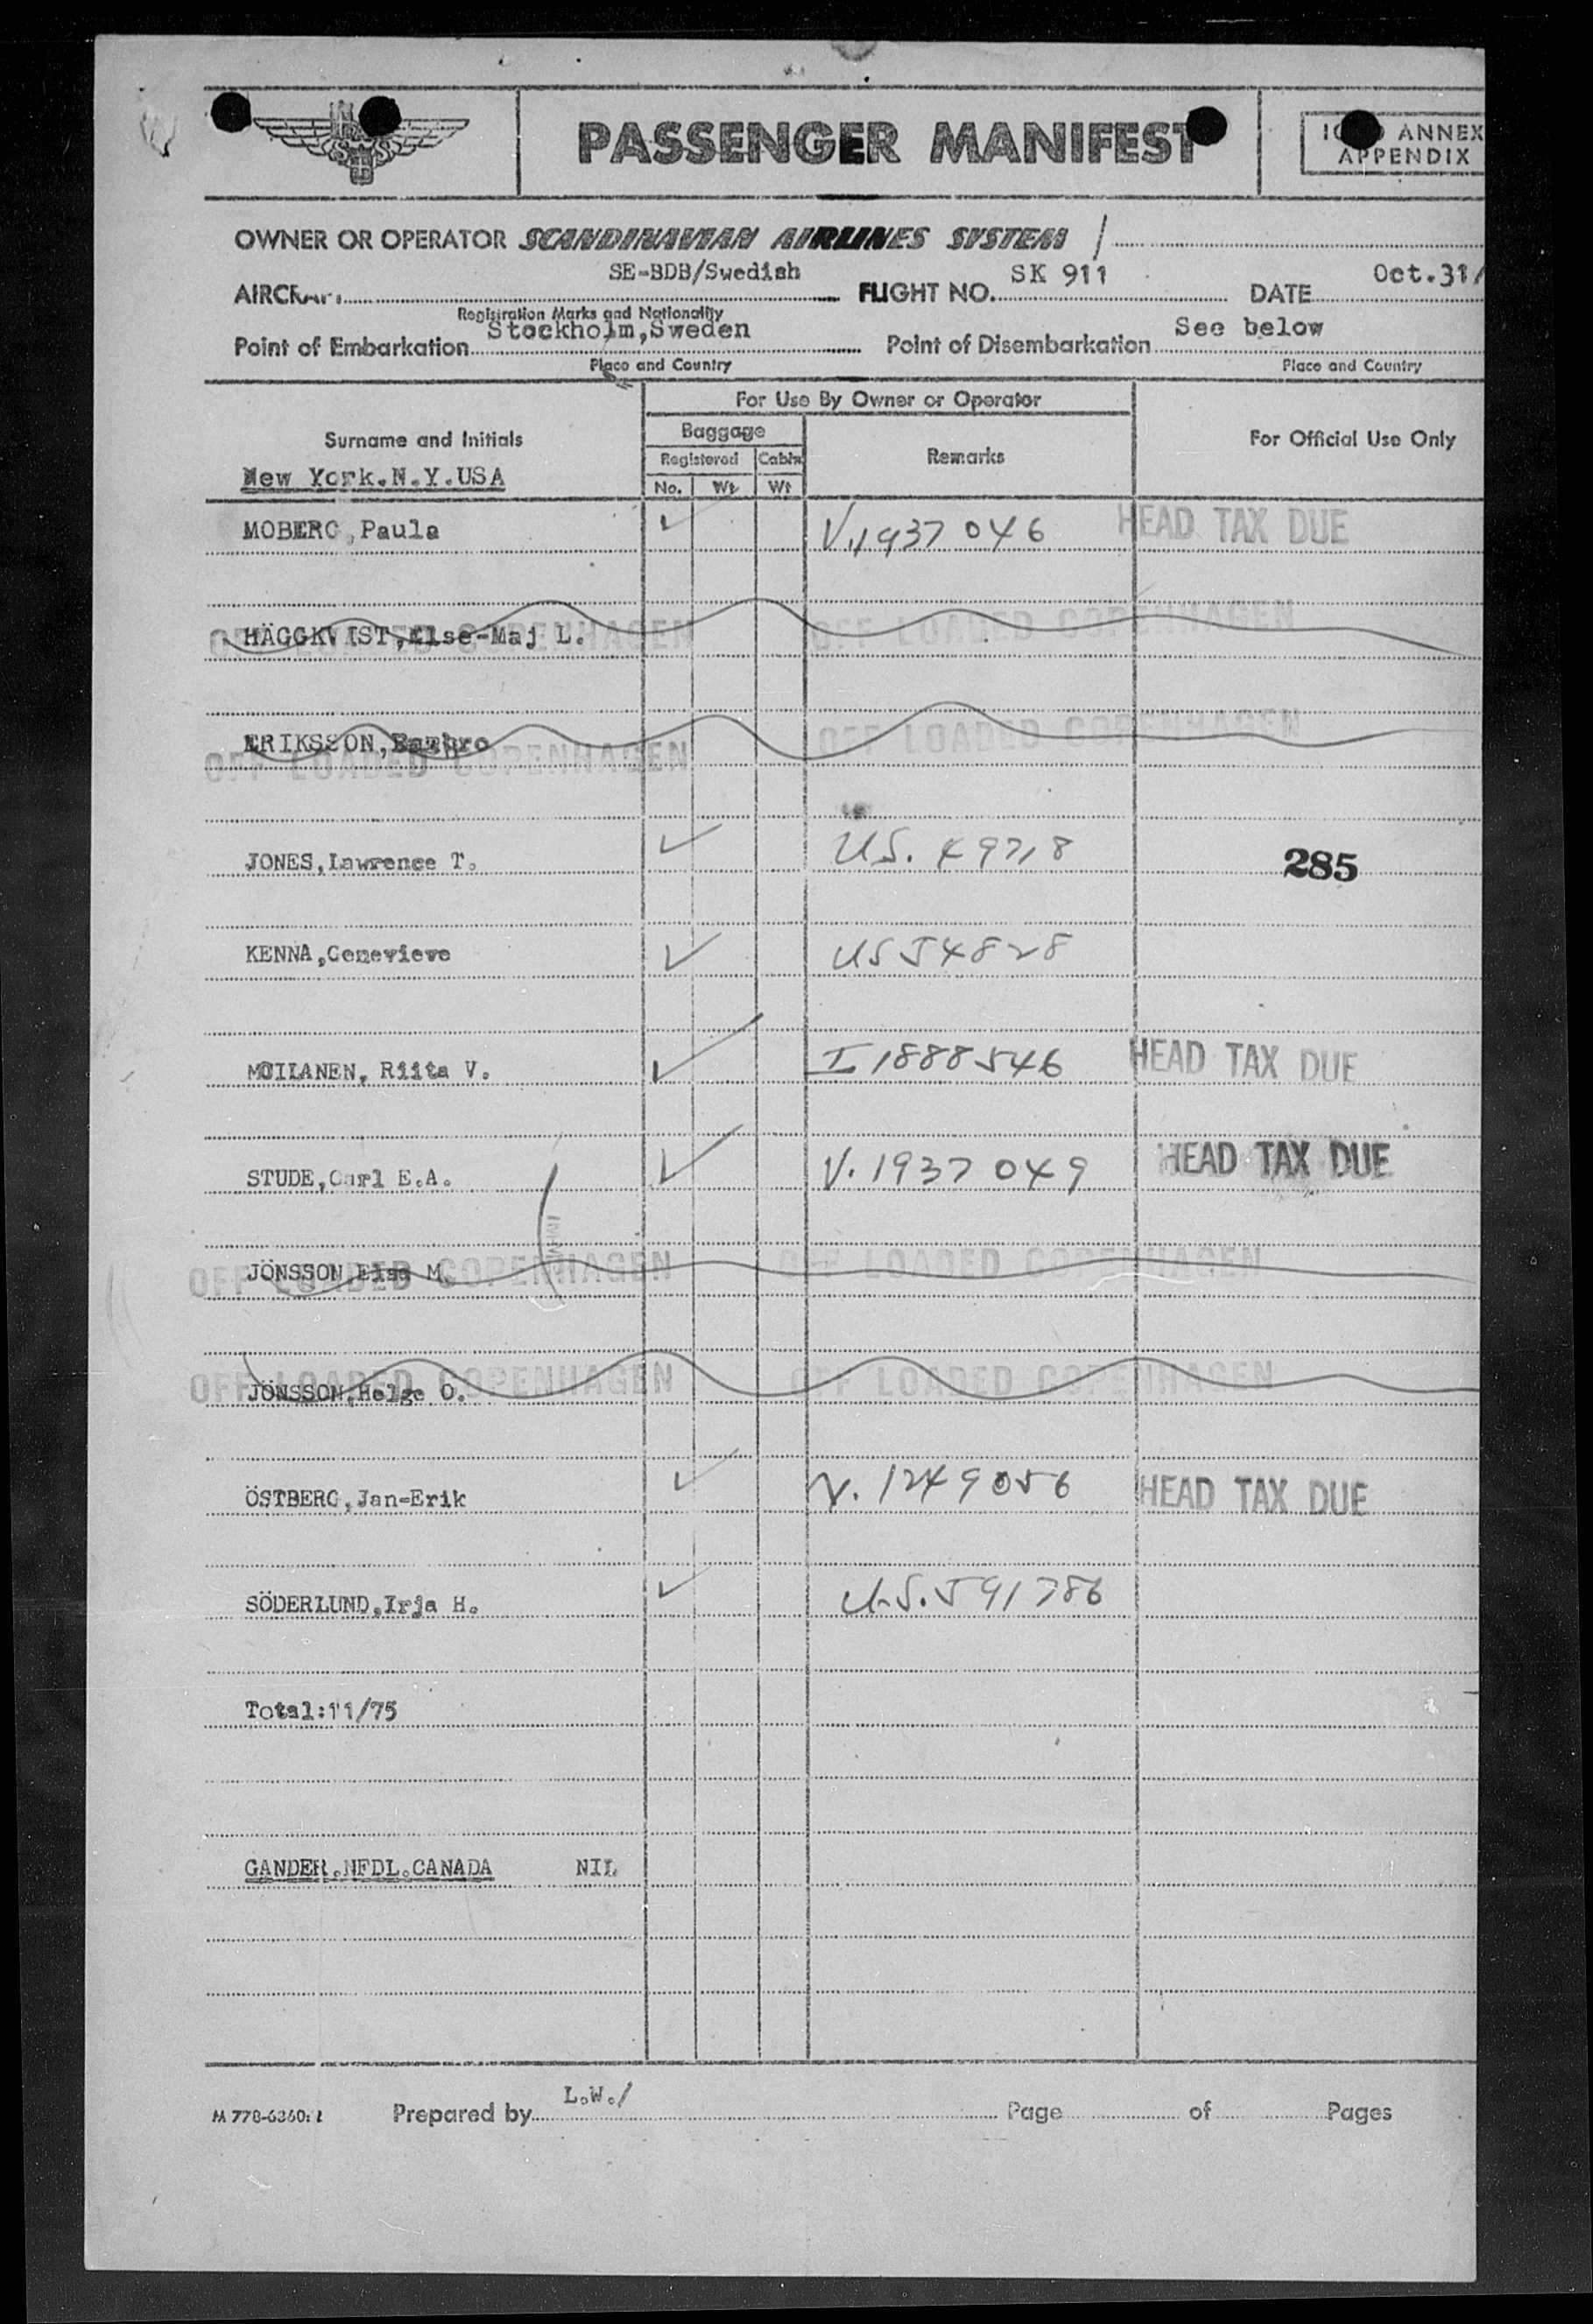 SAS
PASSENGER MANIFEST
ANNEX
APPENDIX
OWNER OR OPERATOR SCANDINAVIAN AIRLINES SYSTEM /
SE-BDB/Swedish SK 911 Oct.31/
AIRCRAFT FLIGHT NO. DATE
Registration Marks and Nationality
Stockholm,Sweden See below
Point of Embarkation Point of Disembarkation
Place and Country Place and Country
For Use By Owner or Operator
Surname and Initials Baggage Remarks For Official Use Only
Registered Cabin
New York.N.Y.USA No. Wt Wt
MOBERG,Paula V.1937 046 HEAD TAX DUE
HÄGGKVIST,Else-Maj L. OFF LOADED COPENHAGEN OFF LOADED COPENHAGEN
ERIKSSON, OFF LOADED COPENHAGEN OFF LOADED COPENHAGEN
JONES,Lawrence T. US. 49718 285
KENNA,Genevieve US 54828
MOILANEN, Riita V. I 1888546 HEAD TAX DUE
STUDE,Carl E.A. V. 1937 049 HEAD TAX DUE
JÖNSSON Elsa M. OFF LOADED COPENHAGEN OFF LOADED COPENHAGEN
JÖNSSON,Helge O. OFF LOADED COPENHAGEN OFF LOADED COPENHAGEN
ÖSTBERG,Jan-Erik V. 1249056 HEAD TAX DUE
SÖDERLUND,Irja H. U.S. 591786
Total:11/75
GANDER.NFDL.CANADA NIL
L.W./
Prepared by Page of Pages